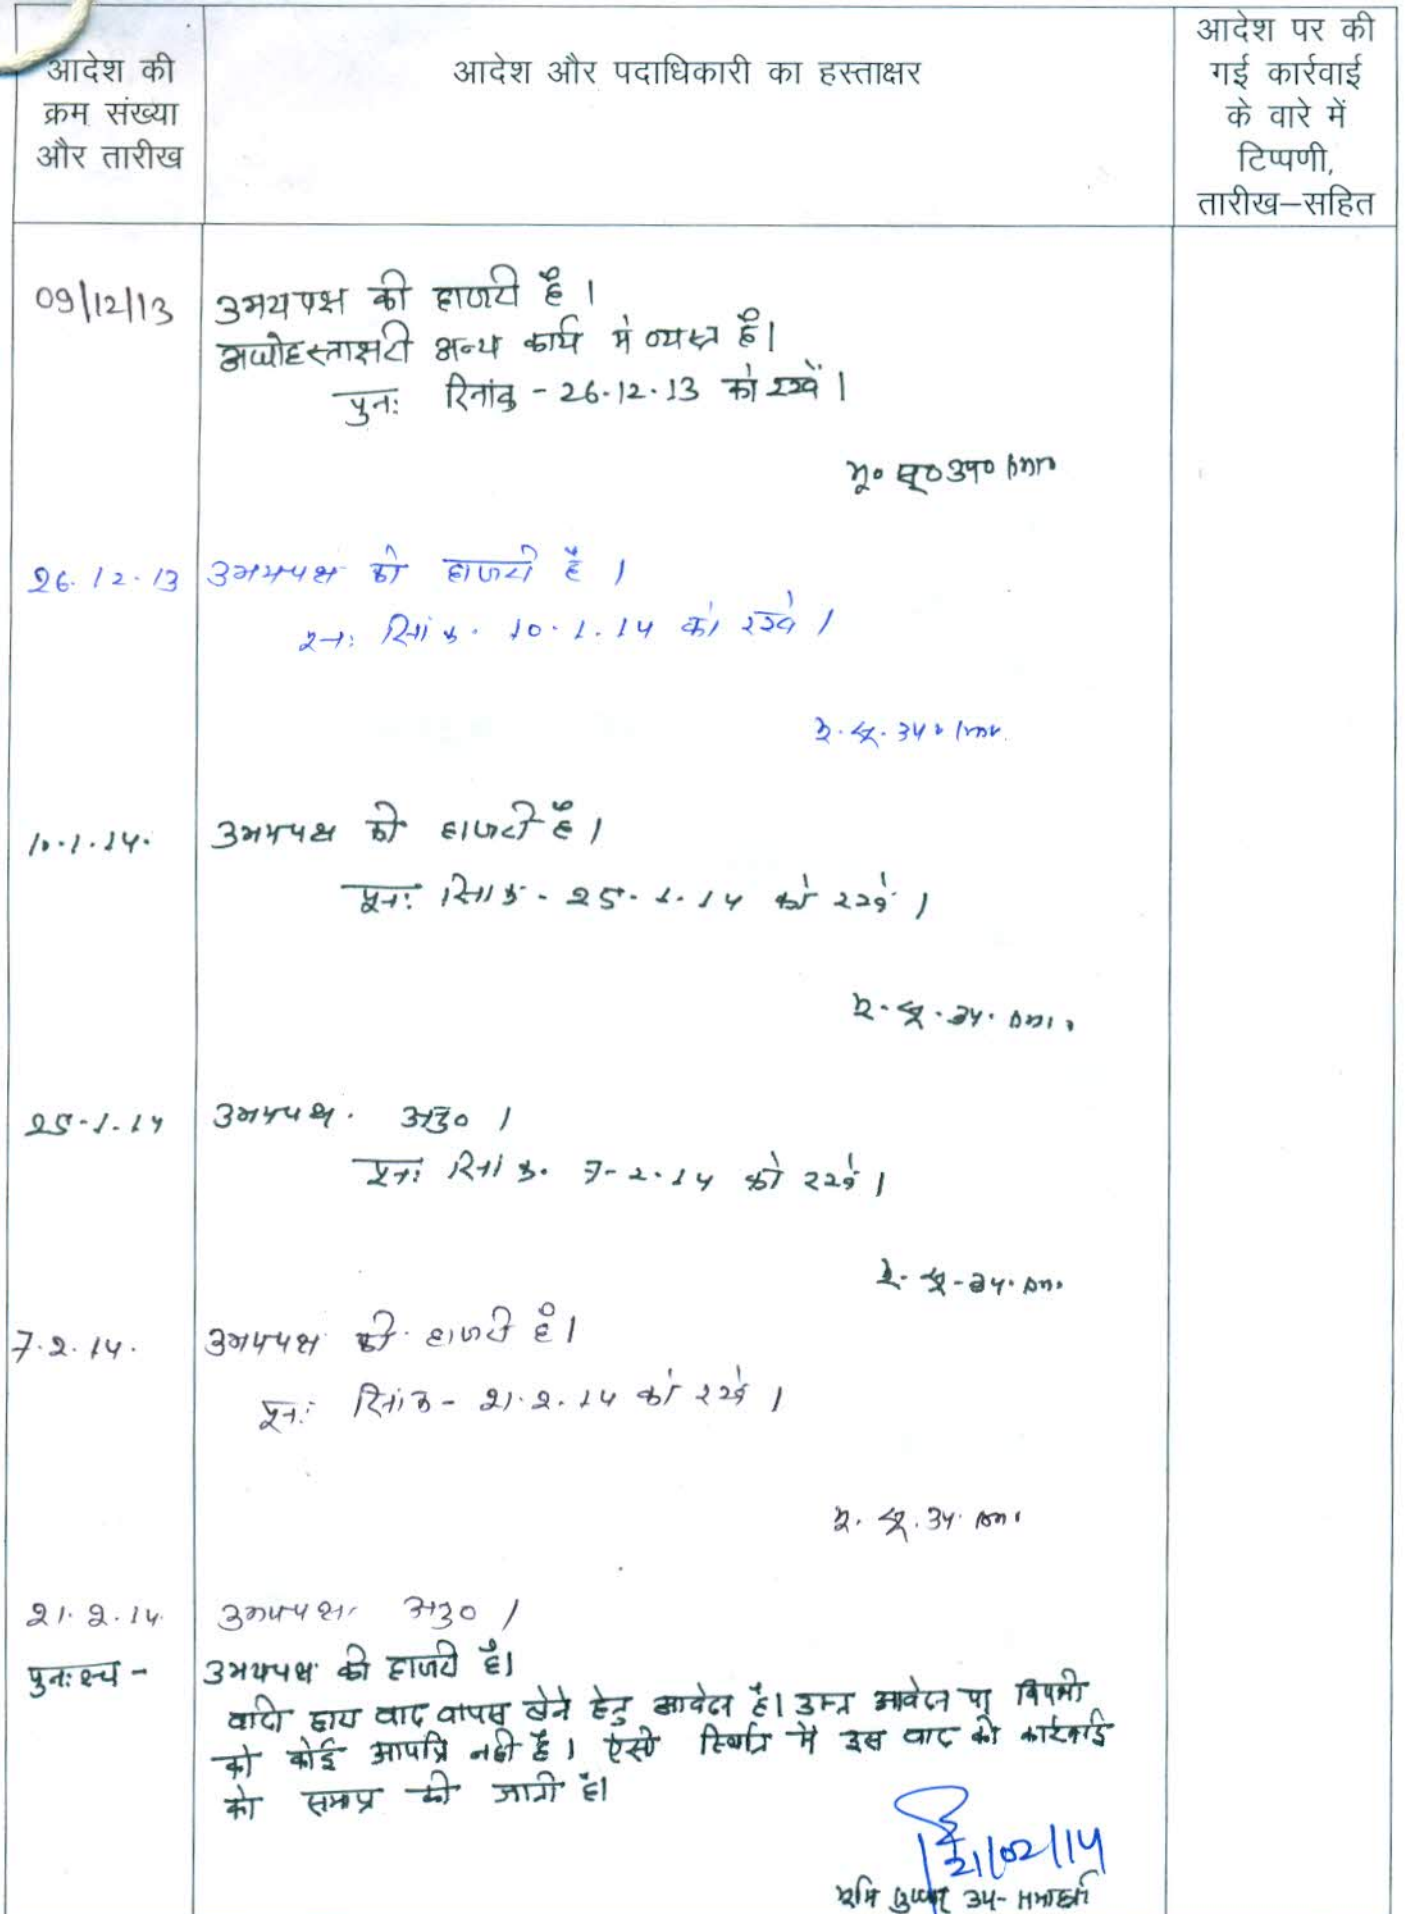 आदेश की
क्रम संख्या
और तारीख
आदेश और पदाधिकारी का हस्ताक्षर
आदेश पर की
गई कार्रवाई
के वारे में
टिप्पणी,
तारीख–सहित
09/12/13 उभयपक्ष की हाजरी है।
अधोहस्ताक्षरी अन्य कार्य मे व्यस्त हैं।
पुनः दिनांक - 26.12.13 को रखें।
भू० सु० उप०
26.12.13 उभयपक्ष की हाजरी है।
पुनः दिनांक. 10.1.14 को रखें।
भू. सु. उप०
10.1.14. उभयपक्ष की हाजरी है।
पुनः दिनांक - 25-1.14 को रखें।
भू. सु. उप.
25-1-14 उभयपक्ष. अनु० ।
पुनः दिनांक. 7-2.14 को रखें।
भू. सु. उप.
7.2.14. उभयपक्ष की हाजरी है।
पुनः दिनांक - 21.2.14 को रखें।
भू. सु. उप.
21.2.14. उभयपक्ष अनु० ।
पुनःश्च - उभयपक्ष की हाजरी है।
वादी द्वारा वाद वापस लेने हेतु आवेदन है। उक्त आवेदन पर विपक्षी
को कोई आपत्ति नही है। ऐसी स्थिति में इस वाद की कार्रवाई
को समाप्त की जाती है।
21/02/14
भूमि सुधार उप-समाहर्ता